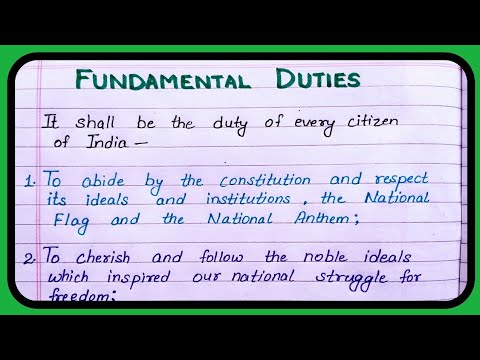 FUNDAMENTAL DUTIES
It shall be the duty of every citizen
of India -
1. To abide by the constitution and respect
its ideals and institutions, the National
Flag and the National Anthem;
2. To cherish and follow the noble ideals
which inspired our national struggle for
freedom;